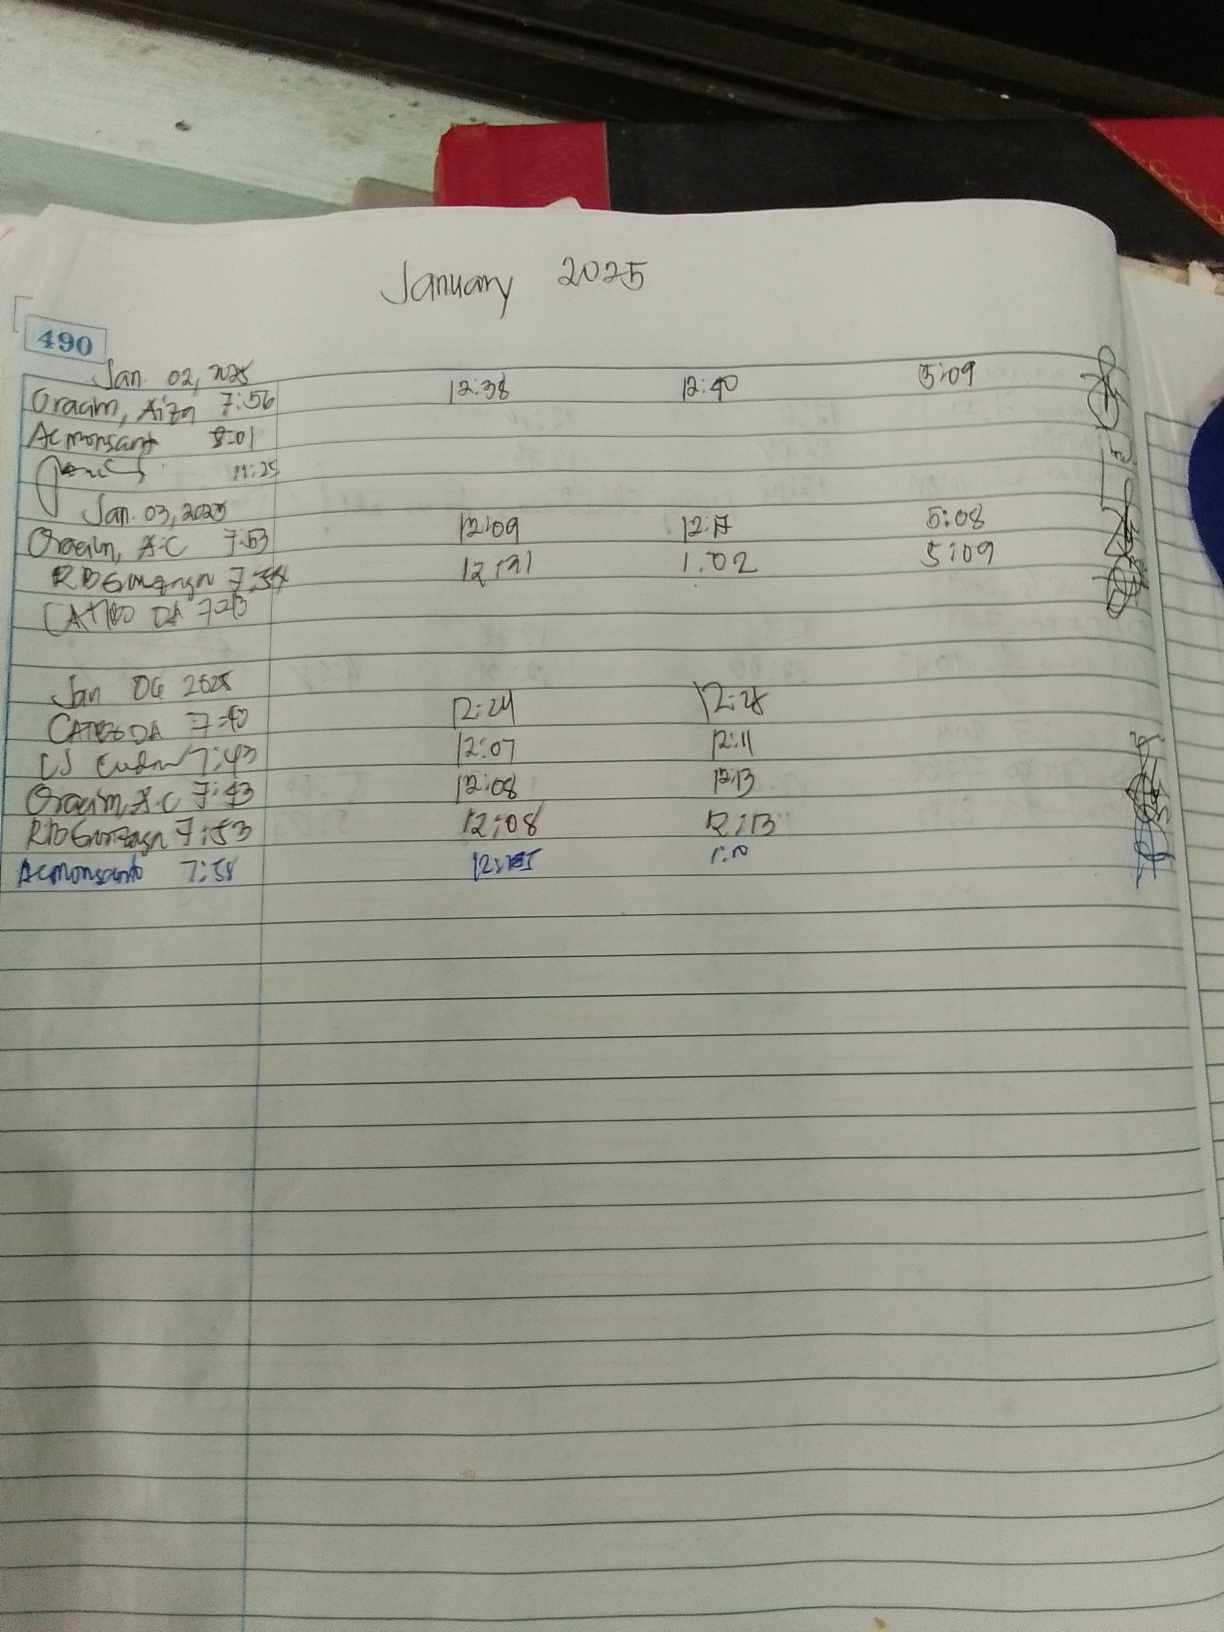 January 2025
490
Jan. 02, 2025
Oracim, Aiza 7:56 12:38 12:40 5:09
Acmonsant 8:01
11:25
Jan. 03, 2025
Oracim, A.C 7:53 12:09 12:17 5:08
7:54 12:21 1:02 5:09
CATIBO DA
Jan 06 2025
CATIBO DA 7:40 12:24 12:28
CJ 7:43 12:07 12:11
Oracim, A.C 7:43 12:08 12:13
7:53 12:08 12:13
Acmonsanto 7:58